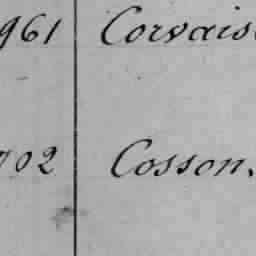 961 Corvais
02 Cosson.